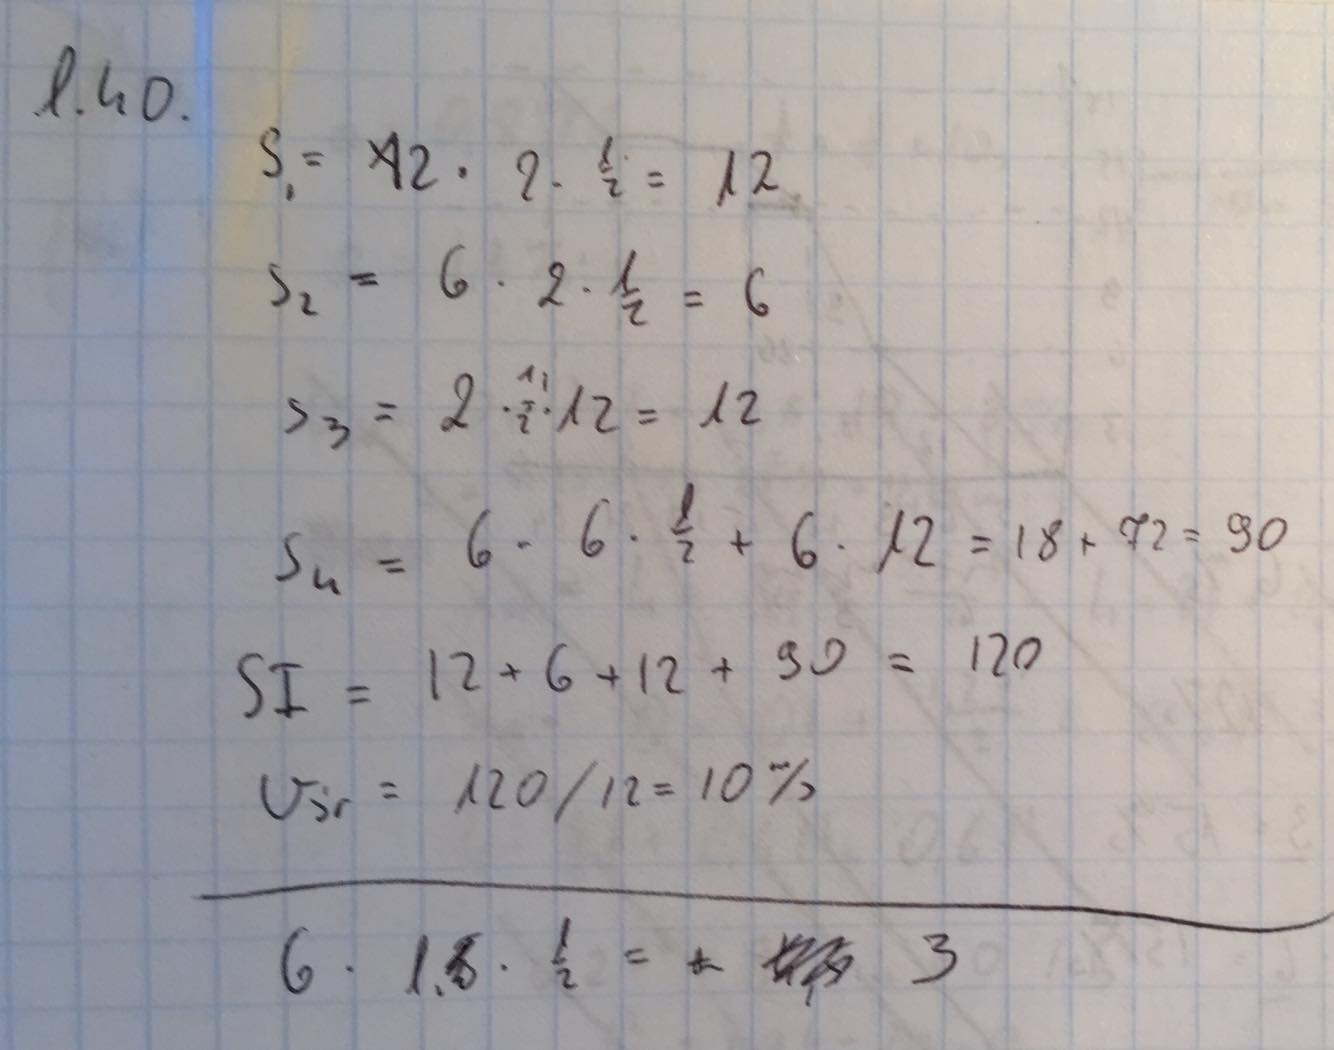 1.40.
S₁ = 12 · 2 · 1/2 = 12
S₂ = 6 · 2 · 1/2 = 6
S₃ = 2 · 1/2 · 12 = 12
S₄ = 6 · 6 · 1/2 + 6 · 12 = 18 + 72 = 90
SI = 12 + 6 + 12 + 90 = 120
Vśr = 120/12 = 10 m/s
6 · 1. · 1/2 = 3